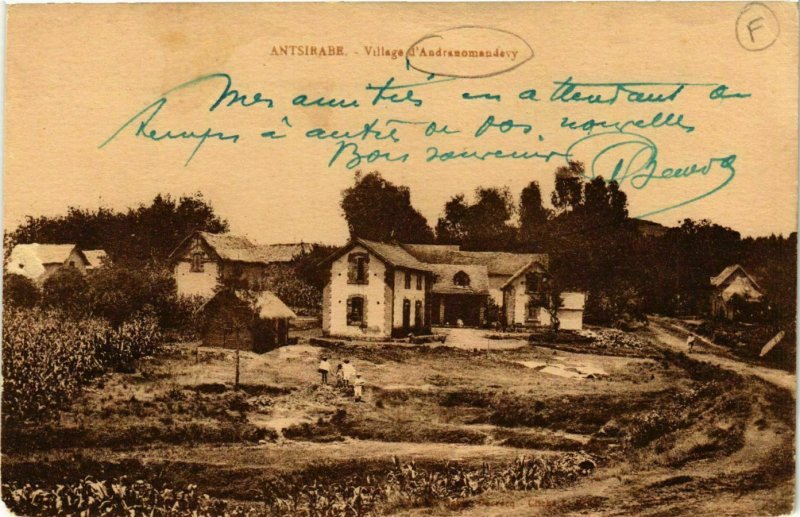 F
ANTSIRABE. - Village d'Andranomandevy
Mes amitiés en attendant de
temps à autre de vos nouvelles
Bon souvenir